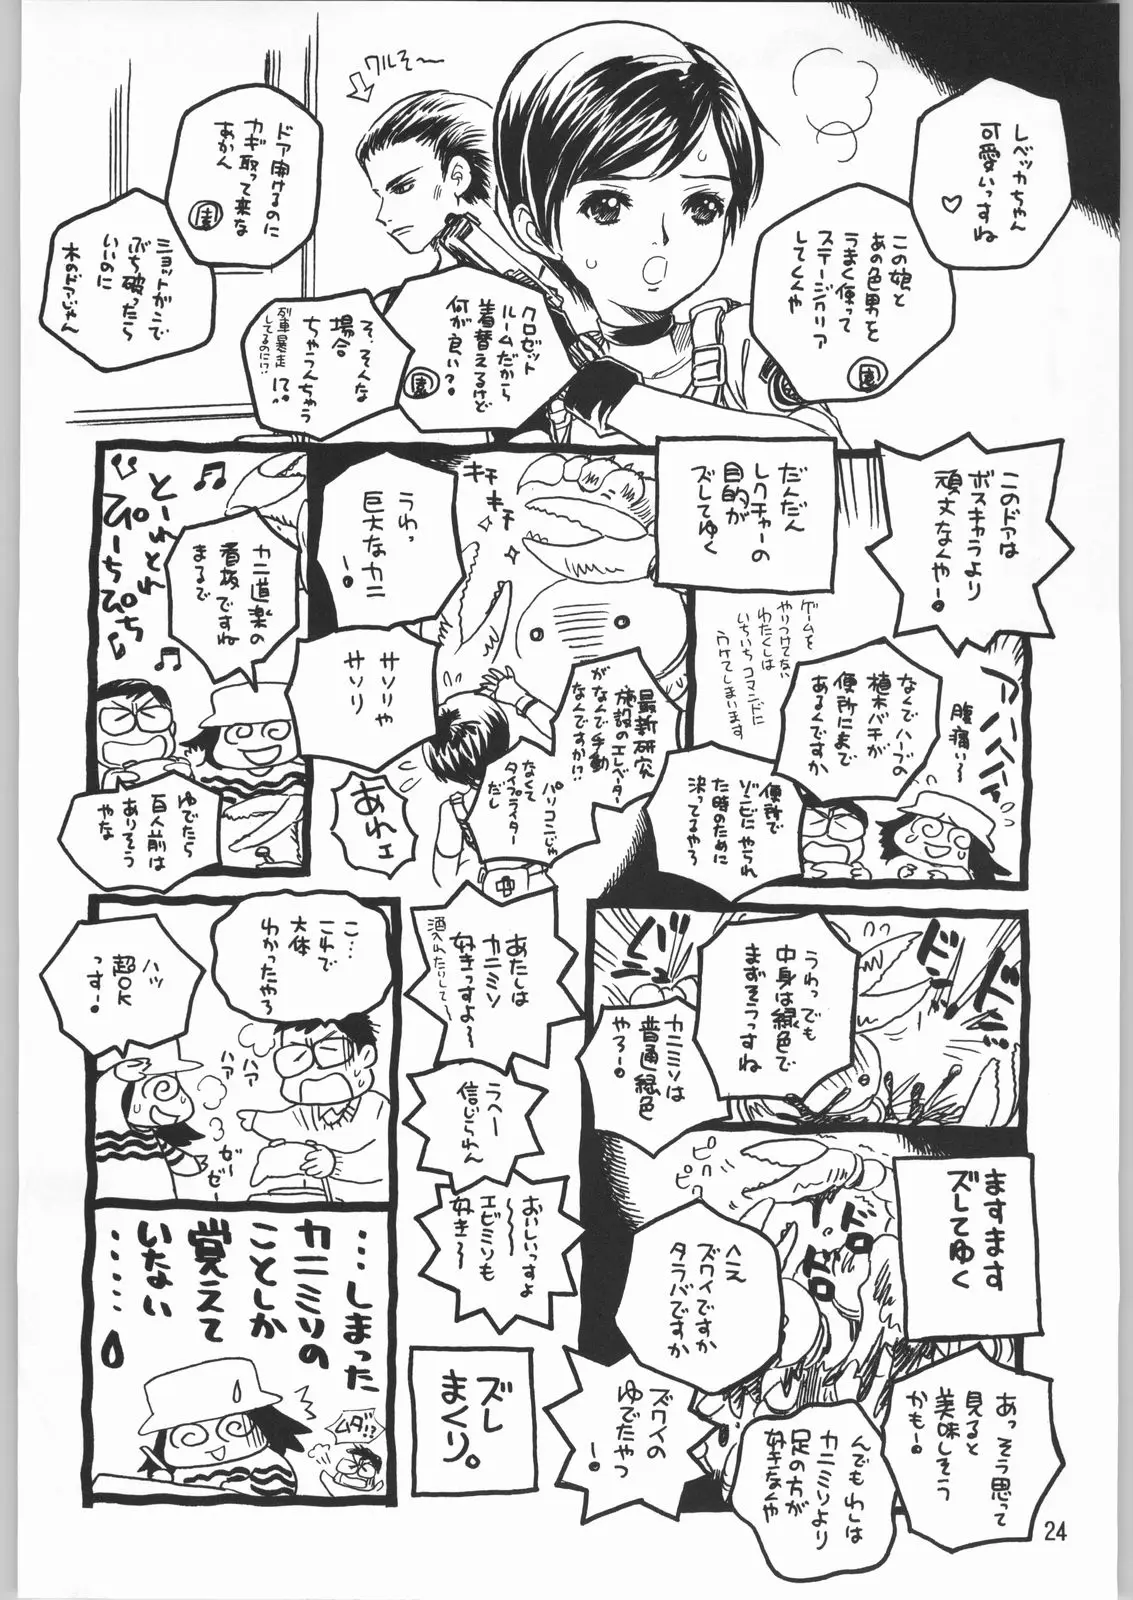 レベッカちゃん
可愛いっすね
♡
この娘と
あの色男を
うまく使って
ステージクリア
してくんや
園
ワルそ〜
クロゼット
ルームだから
着替えるけど
何が良い?
園
そ、そんな
場合
ちゃうんちゃう
に?
列車暴走
してるのに!?
ドア開けるのに
カギ取って来な
あかん
園
ショットガンで
ぶち破ったら
いいのに
木のドアじゃん
このドアは
ボスキャラより
頑丈なんや!
なんでハーブの
植木バチが
便所にまで
あるんですか
腹痛い〜
アハハハハ
便所で
ゾンビにやられ
た時のために
決ってるやろ
だんだん
レクチャーの
目的が
ズレてゆく
ゲームを
やりつけてない
わたくしは
いちいちコマンドに
ウケてしまいます
最新研究
施設のエレベーター
がなんで手動
なんですか!?
パソコンじゃ
なくて
タイプライター
だし
キチ
キチ
うわっ
巨大なカニ
!
サソリや
サソリ
あれェ
とーれとれ
ぴーちぴち
カニ道楽の
看板ですね
まるで
ゆでたら
百人前は
ありそう
やな
ドーン
ドン
うわっでも
中身は緑色で
まずそうっすね
カニミソは
普通緑色
やろー!
ますます
ズレてゆく
ピク
ピク
ドロ
ドロ
へえ
ズワイですか
タラバですか
あっそう思って
見ると
美味しそう
かも!
んでもわしは
カニミソより
足の方が
好きなんや
ズワイの
ゆでたやつ
!
あたしは
カニミソ
好きっすよ〜
酒入れたりして〜
うへー
信じられん
おいしいっすよ
〜〜
エビミソも
好き〜
ズレ
まくり。
こ…
これで
大体
わかったやろ
ハッ
超OK
っす!
ハァ
ハァ
ゼーゼー
…しまった
カニミソの
ことしか
覚えて
いない
……
ムダ!?
24